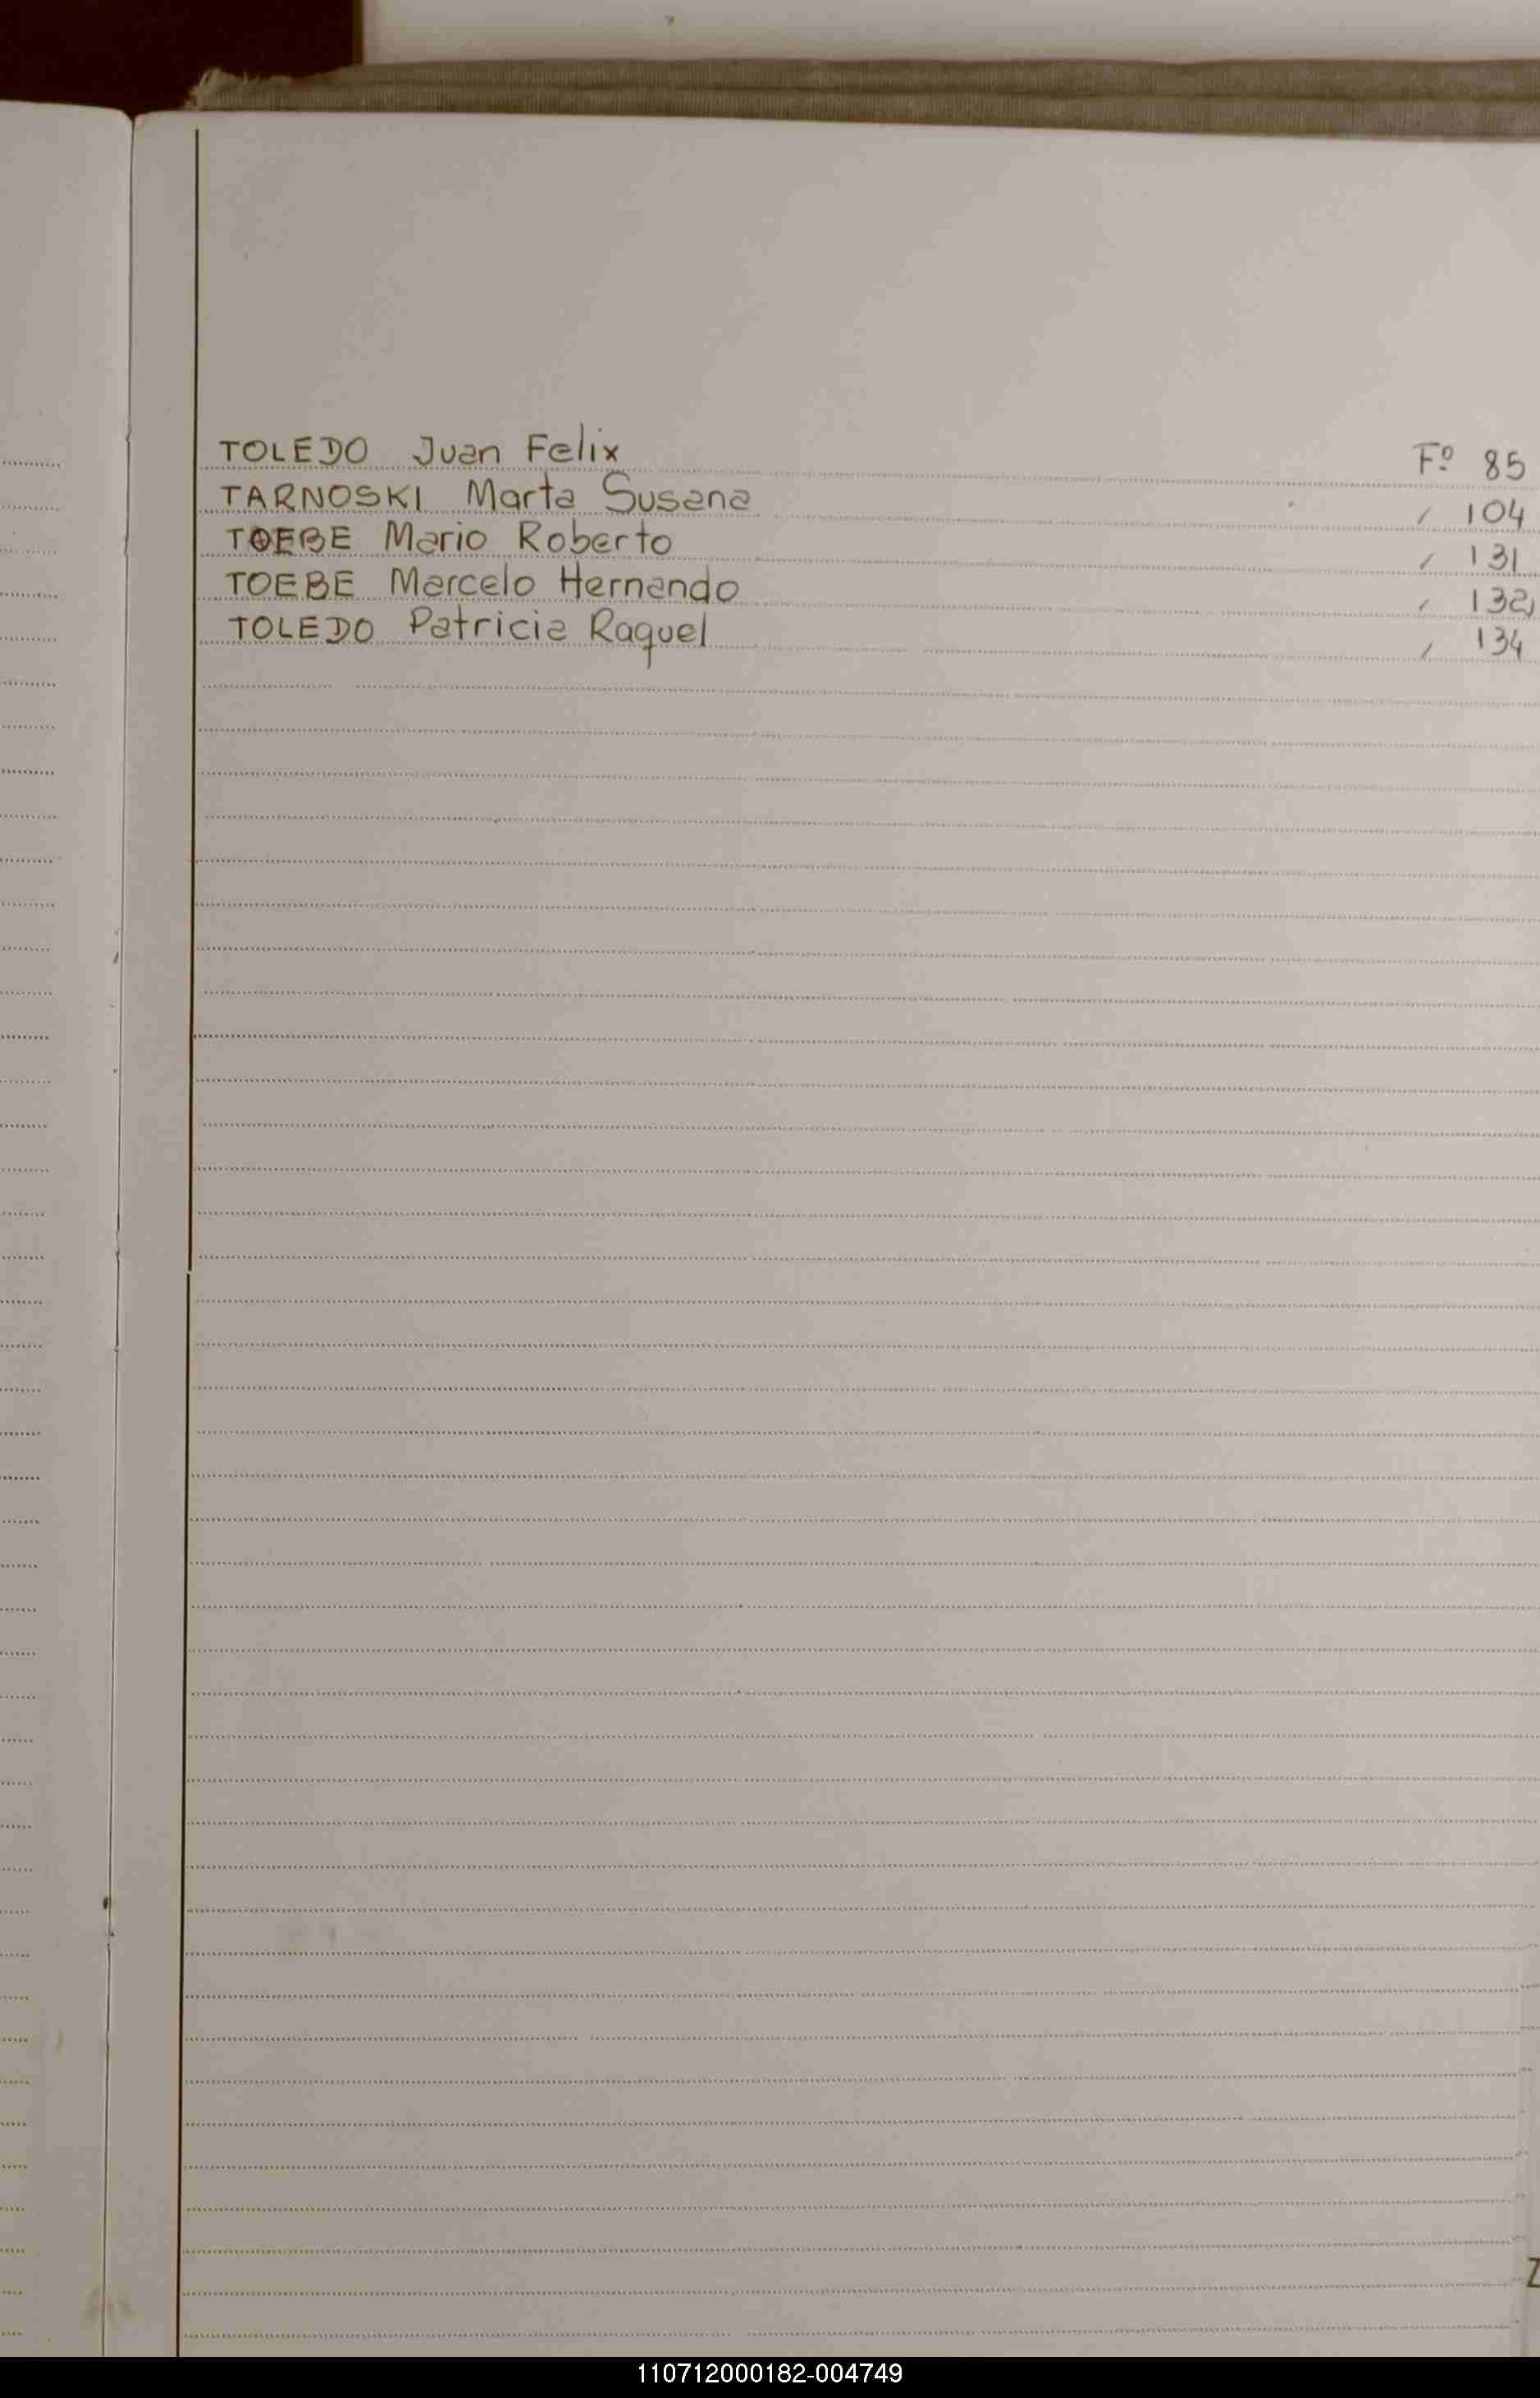 TOLEDO Juan Felix Fº 85
TARNOSKI Marta Susana , 104
TOEBE Mario Roberto , 131
TOEBE Marcelo Hernando , 132
TOLEDO Patricia Raquel , 134
Z
110712000182-004749